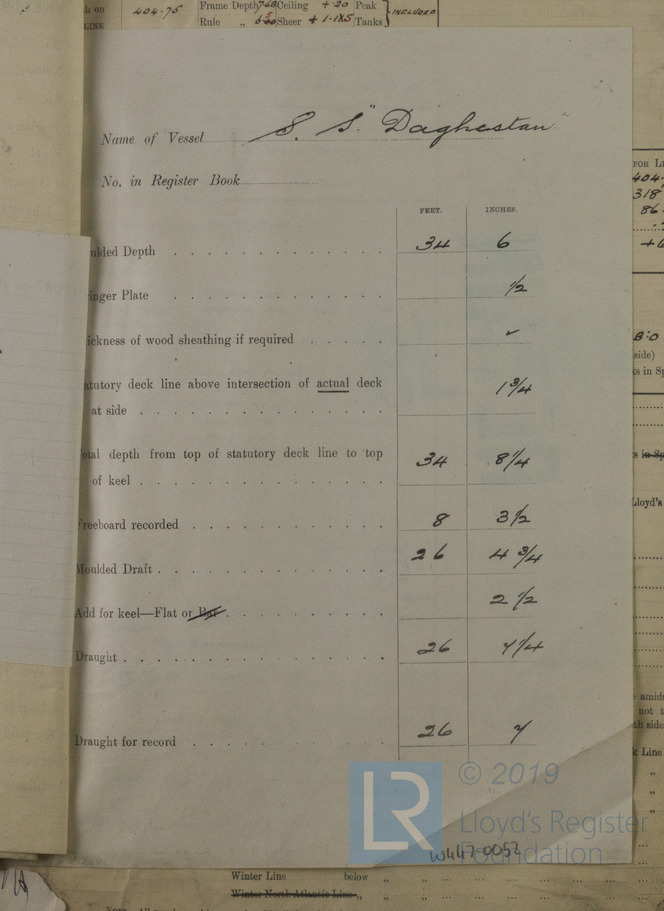 404.75 Frame Depth 7.60 Ceiling + .20 Peak
LINE Rule „ Sheer + 1.185 Tanks } INCLUDED
Name of Vessel S. S. "Daghestan"
No. in Register Book
FEET. INCHES.
ulded Depth 34 6
inger Plate 1/2
ickness of wood sheathing if required ✓
atutory deck line above intersection of actual deck
at side 1 3/4
otal depth from top of statutory deck line to top
of keel 34 8 1/4
Freeboard recorded 8 3 1/2
Moulded Draft 26 4 3/4
Add for keel—Flat or Bar 2 1/2
Draught 26 7 1/4
Draught for record 26 7
FOR LI
404.
318
86.
+6
8.0
side)
ks in Sp
s in Sp
Lloyd's
e amids
not t
th side
k Line
„
„
„
LR © 2019
Lloyd's Register
Foundation
W447-0052
Winter Line below „ „
Winter North Atlantic Line „ „ „